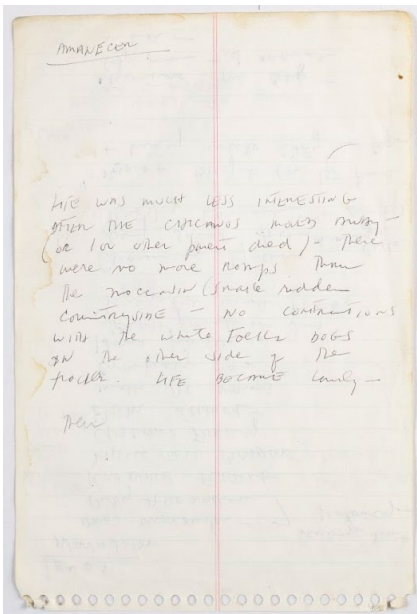 AMANECER
LIFE WAS MUCH LESS INTERESTING
AFTER THE CHICANOS MOVED AWAY -
(or 1 or other parent died) - There
were no more Romps Thru
the moccasin (snake ridden
COUNTRYSIDE - NO
WITH the white FOLKS DOGS
ON the other side of the
. LIFE BECAME lonely -
Their